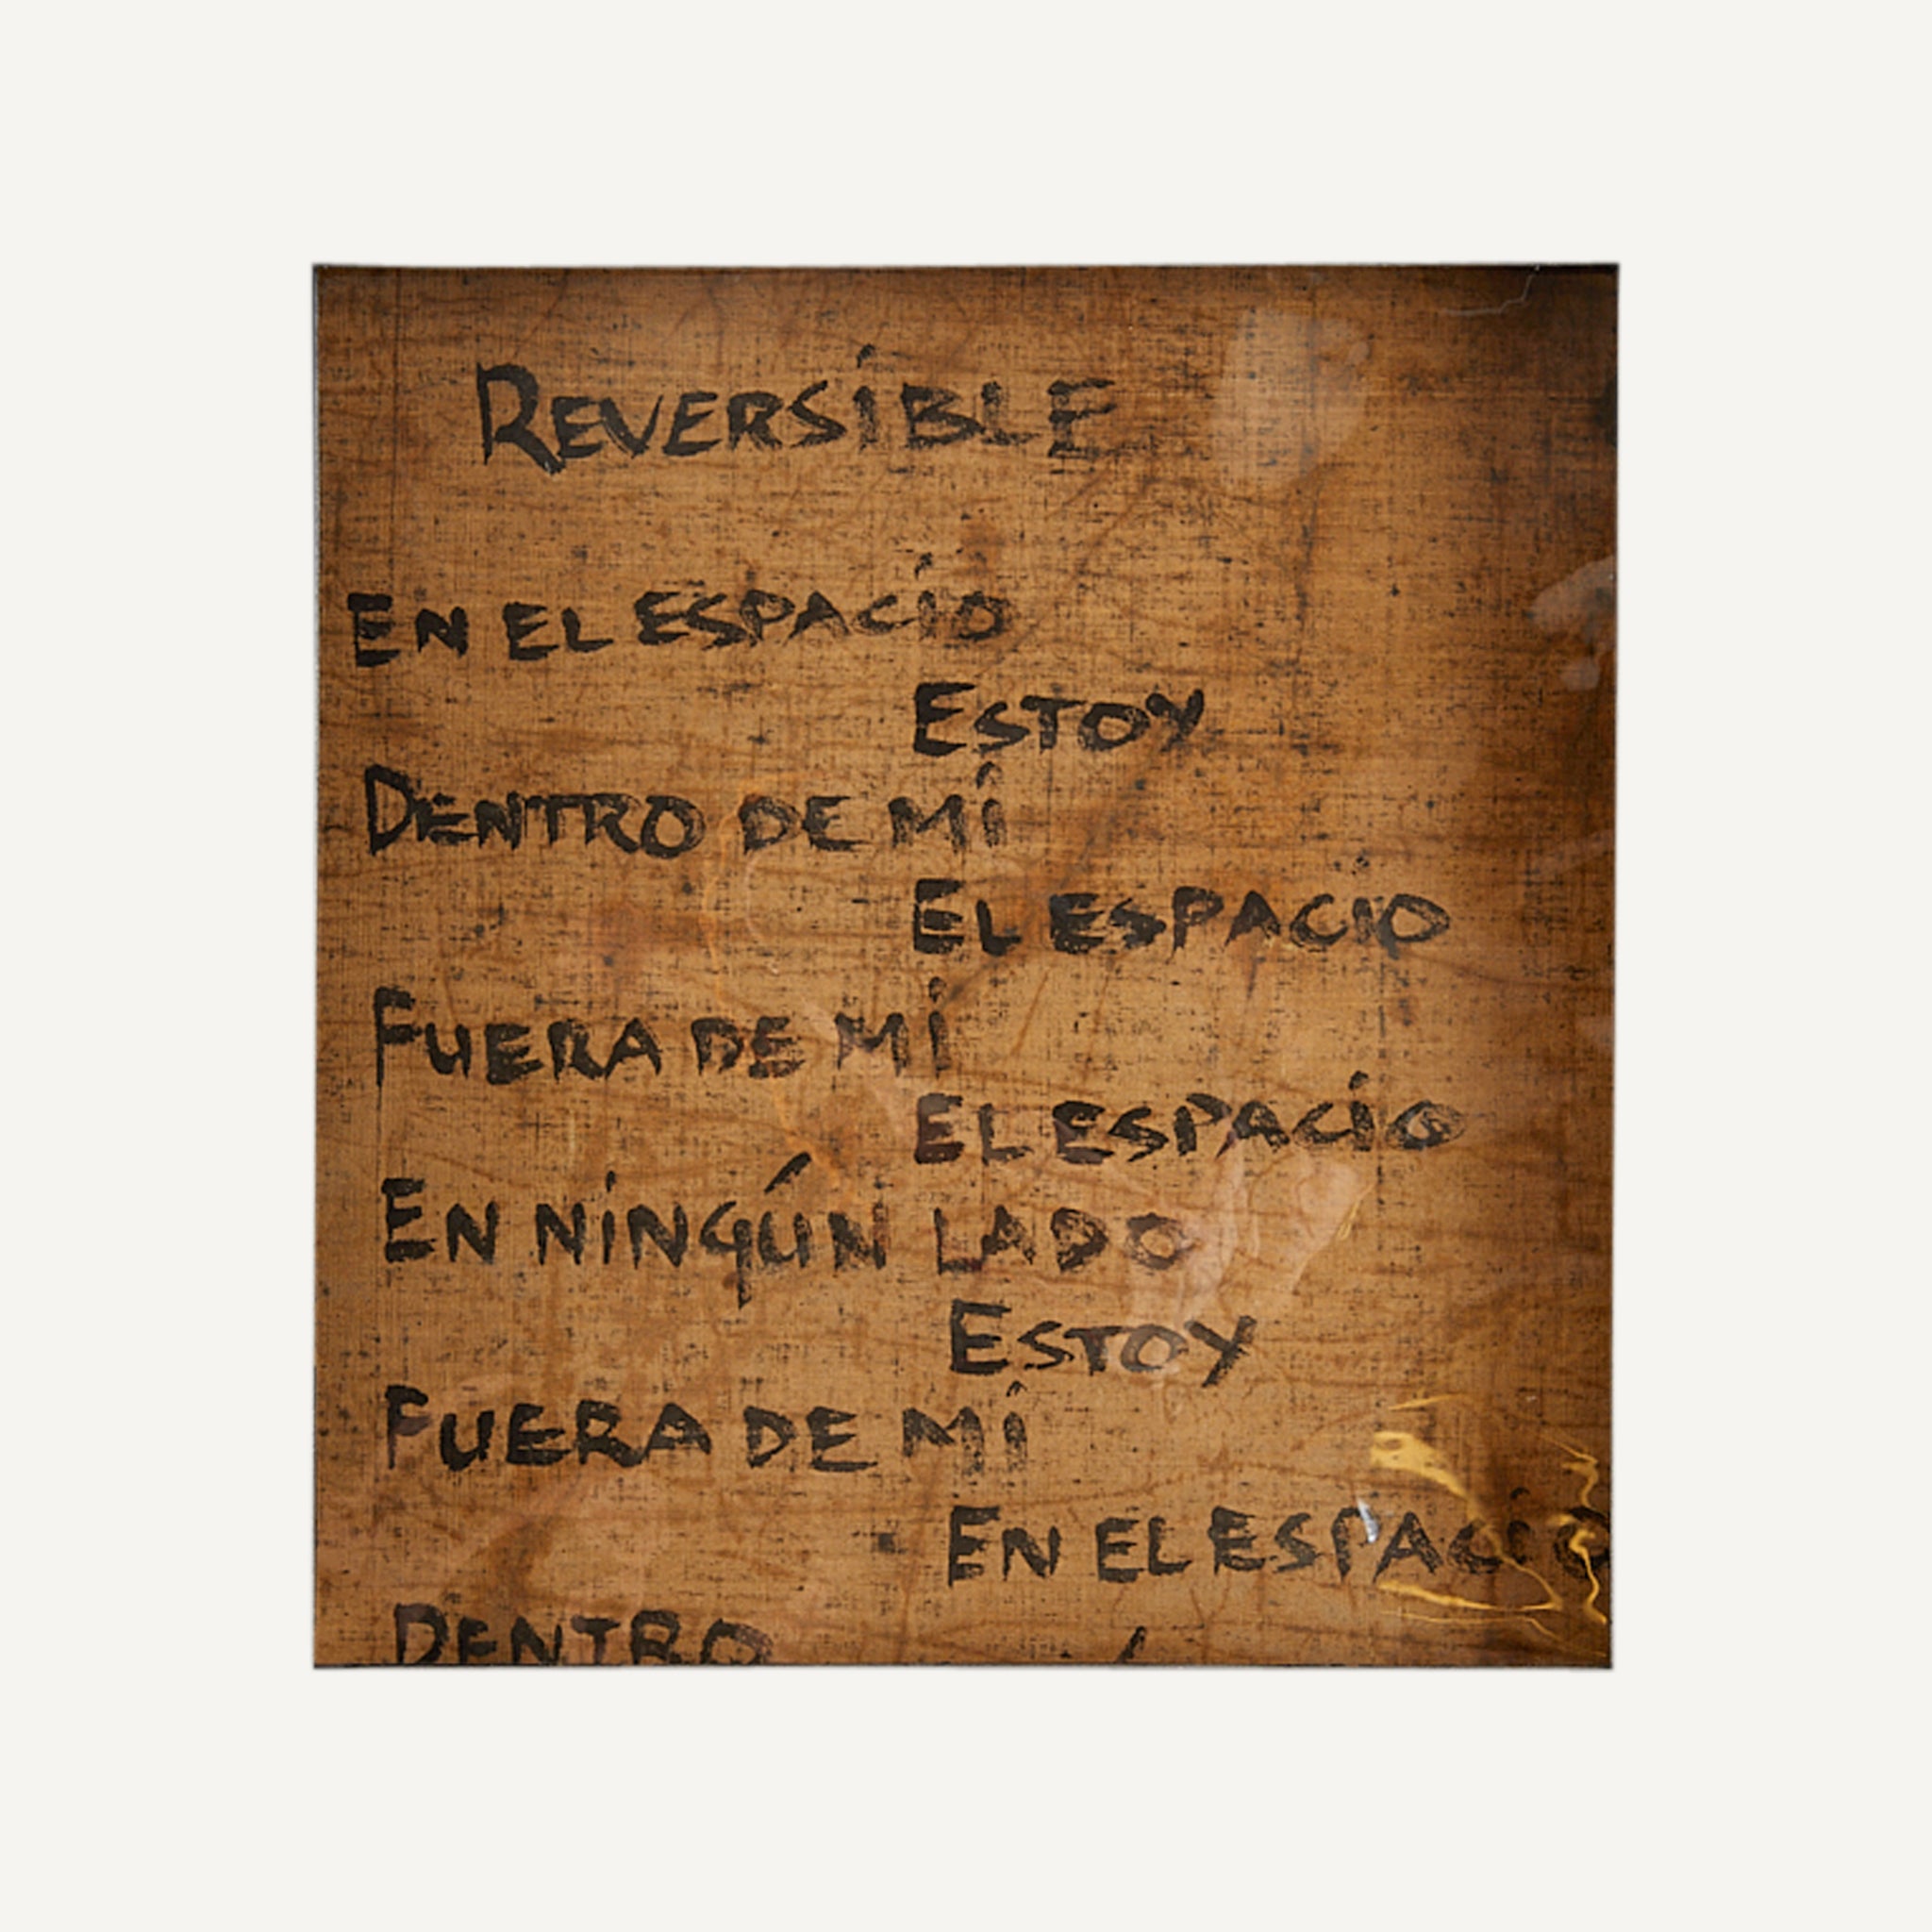 REVERSiBLE
EN EL ESPACiO
ESTOY
DENTRO DE Mí
EL ESPACiO
FUERA DE Mí
EL ESPACiO
EN NiNgÚN LADO
ESTOY
FUERA DE Mí
EN EL ESPACiO
DENTRO